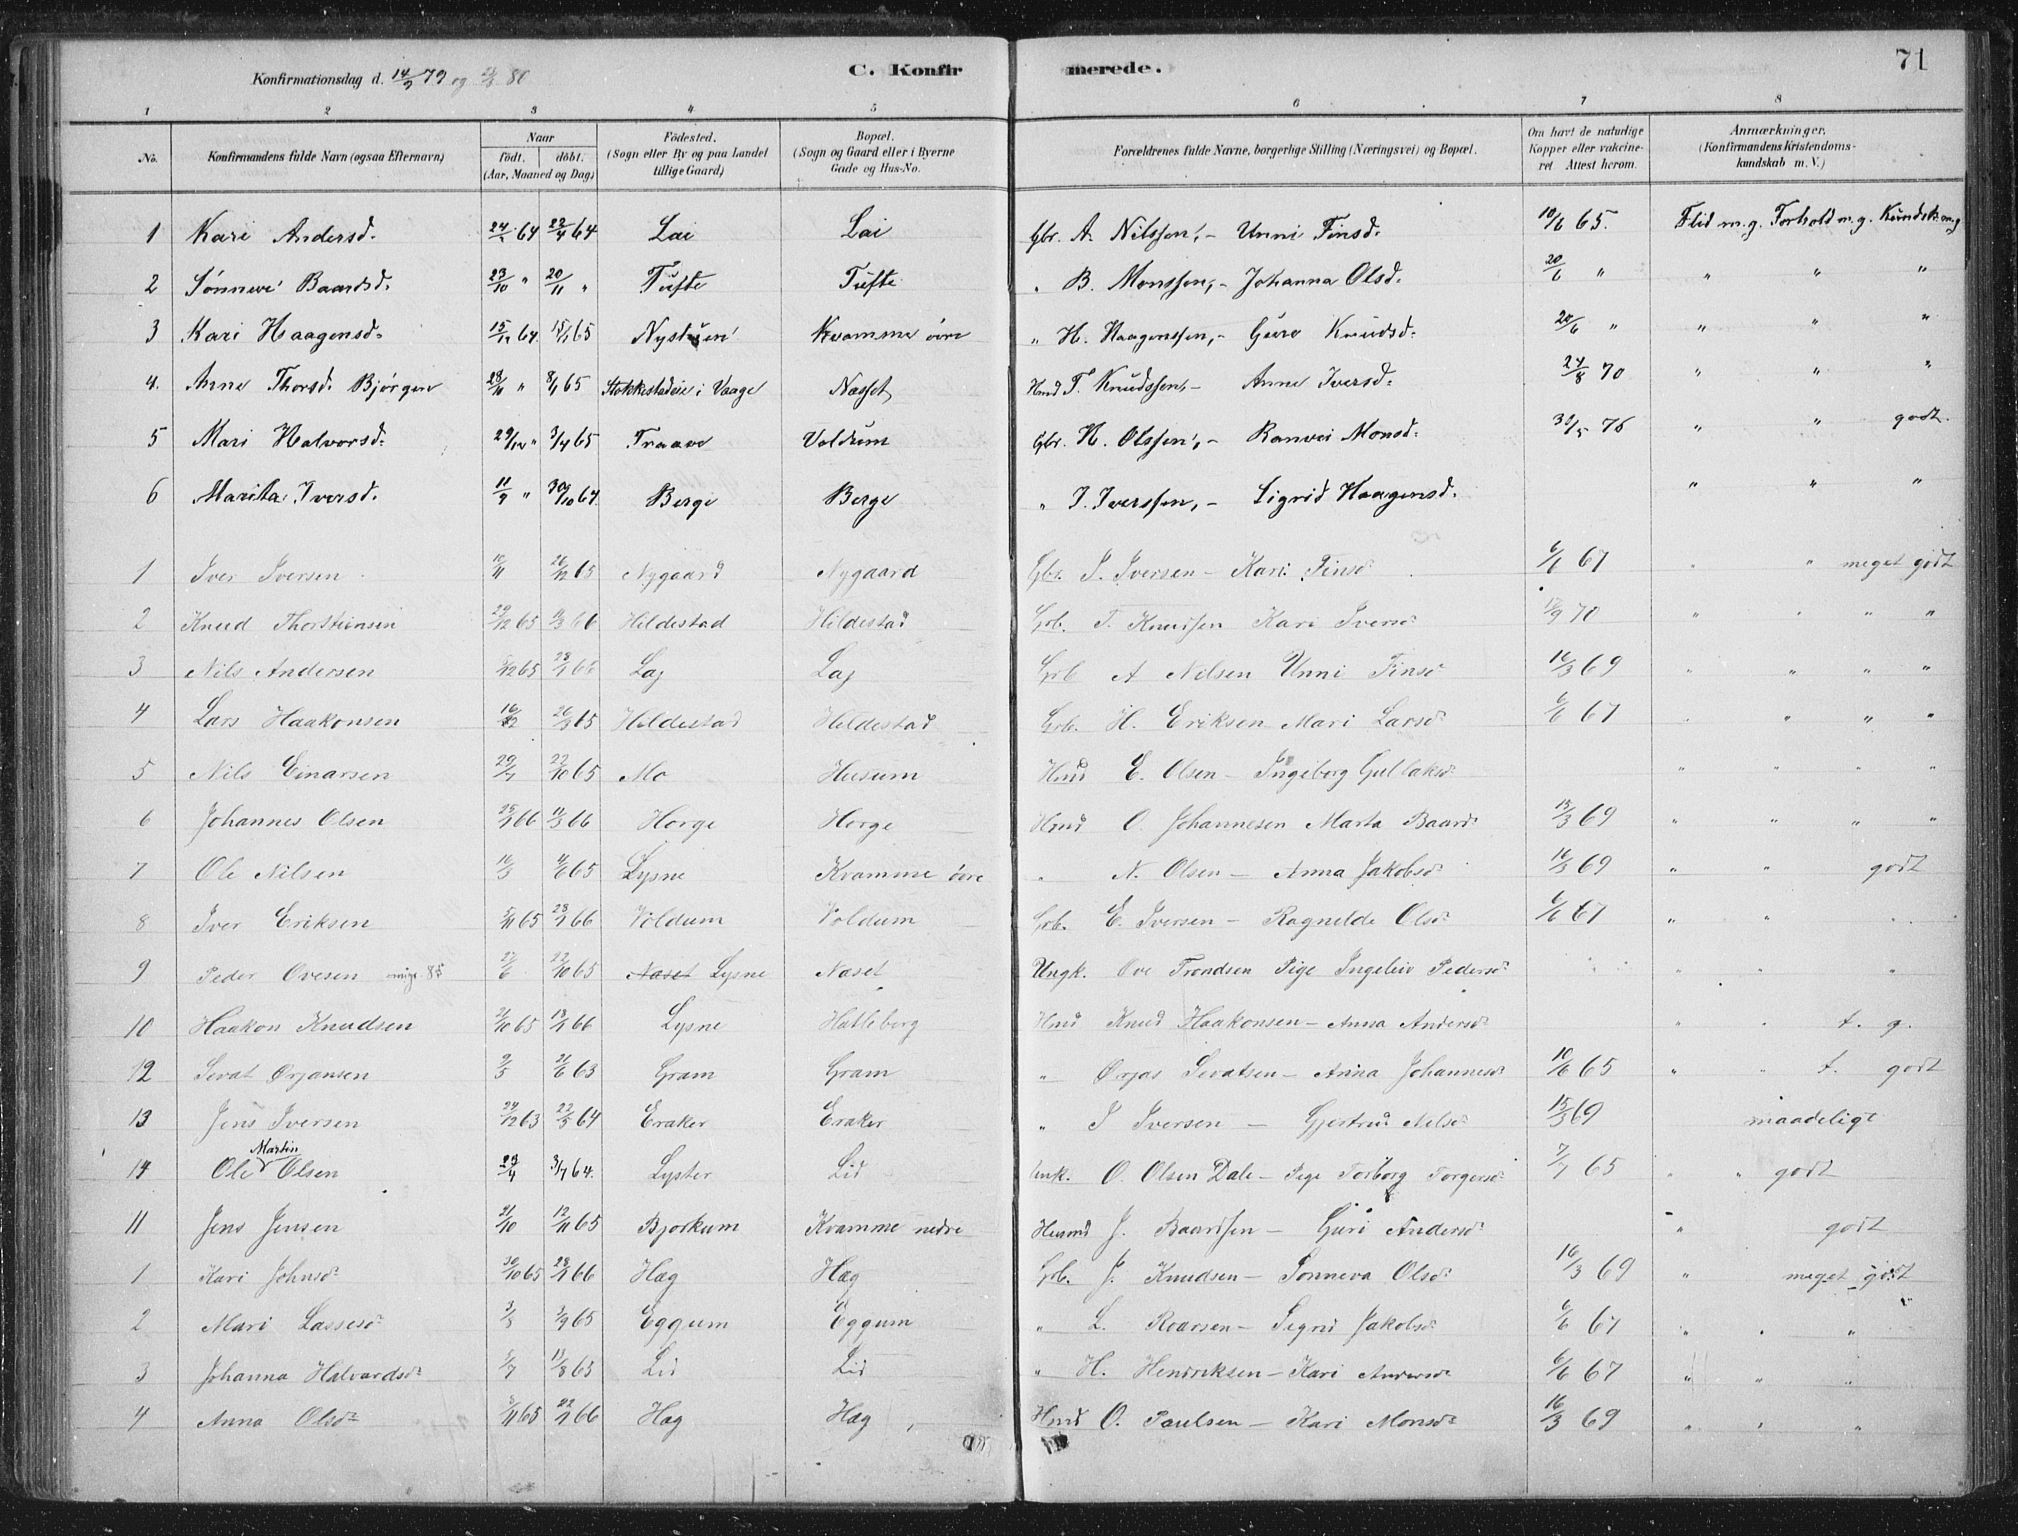 Konfirmationsdag d. 14/9 79 og 80
C. Konfirmerede.
71
1 2 3 4 5 6 7 8
No.
Konfirmandens fulde Navn (ogsaa Efternavn)
Naar
födt. döbt.
(Aar, Maaned og Dag)
Födested.
(Sogn eller By og paa Landet
tillige Gaard)
Bopæl.
(Sogn og Gaard eller i Byerne
Gade og Hus-No.
Forældrenes fulde Navne, borgerlige Stilling (Næringsvei) og Bopæl.
Om havt de naturlige
Kopper eller vakcine-
ret Attest herom.
Anmærkninger.
(Konfirmandens Kristendoms-
kundskab m. V.)
1 Kari Andersd. 64 22/4 64 Lai Lai Gbr. A. Nilssen, - Unni Finsd. 10/6 65. Flid m.g. Forhold m.g. Kundsk. m.g
2 Sønneve Baardsd. 23/10 " 20/11 " Tufte Tufte " B. Monssen, - Johanna Olsd. 20/6 " " " "
3 Kari Haagensd. 15/12 64. 15/1 65 Nystuen Kvamme övre " H. Haagenssen, - Guro Knudsd. 20/6 " " " "
4. Anne Thorsd. Bjørgen 28/11 " 8/1 65 Stokkestadeie i Vaage Næsset Hmd T. Knudssen, - Anne Iversd. 24/8 70 " " "
5 Mari Halvorsd. 29/12 " 3/4 65 Traave Voldum Gbr. H. Olssen, - Ranvei Monsd. 30/5 76 " " godt.
6 Marita Iversd. 11/9 " 30/10 64. Berge Berge " I. Iverssen, - Sigrid Haagensd. " " "
1 Iver Iversen 26/12 65 Nygaard Nygaard Gbr. I. Iversen - Kari Finsd 6/6 67 " " meget godt
2 Knud Thorsteinsen 29/12 65 11/3 66 Hildestad Hildestad Grb. T. Knudsen Kari Iversd 70 " " " "
3 Nils Andersen 65 28/1 66 Laj Laj Grb A Nilsen Unni Finsd 16/3 69 " " " "
4 Lars Haakonsen 26/3 65 Hildestad Hildestad Grb. H. Eriksen Mari Larsd 6/6 67 " " " "
5 Nils Einarsen 22/10 65 Mo Husum Hmd E. Olsen - Ingeborg Gullaksd " " " "
6 Johannes Olsen 25/1 66 11/3 66 Horge Horge Hmd O. Johannesen Marta Baard 69 " " " "
7 Ole Nilsen 65 Lysne Kvamme övre " N. Olsen - Anna Jakobsd 16/3 69 " " godt
8 Iver Eriksen 5/11 65 28/1 66 Voldum Voldum Grb. E. Iversen - Ragnilde Olsd 6/6 67 " "
9 Peder Ovesen emigr. 85 22/10 65 Naset Lysne Naset Ungk. Ove Trondsen Pige Ingeleiv Pedersd " " "
10 Haakon Knudsen 21/10 65 66 Lysne Hatleberg Hmd Knud Haakonsen - Anna Andersd " " t. g.
12 Sevat Ørjansen 63 Gram Gram " Ørjas Sevatsen - Anna Johannesd 10/6 65 " " t. godt
13 Jens Iversen 24/12 63 22/5 64 Eraker Eraker " I Iversen - Gjertrud Nilsd 15/3 69 maadeligt
14 Ole Martin Olsen 3/7 64. Lyster Lid Unk. O. Olsen Dale - Pige Torborg Torgersd 7/7 65 " " godt
11 Jens Jensen 21/10 12/11 65 Bjorkum Kvamme nedre Husmd J. Baardsen - Guri Andersd " godt
1 Kari Johnsd 30/10 65 28/1 66 Hæg Hæg Grb. J. Knudsen - Sonneva Olsd 16/3 69 " meget godt
2 Mari Lassesd 65 Eggum Eggum " L. Roarsen - Sigrid Jakobsd 6/6 67 " " "
3 Johanna Halvardsd 65 Lid Lid " H. Hendriksen - Kari Andersd 6/6 67 " " "
4 Anna Olsd 65 22/1 66 Hæg Hæg Hmd O. Paulsen - Kari Monsd 16/3 69 " " "